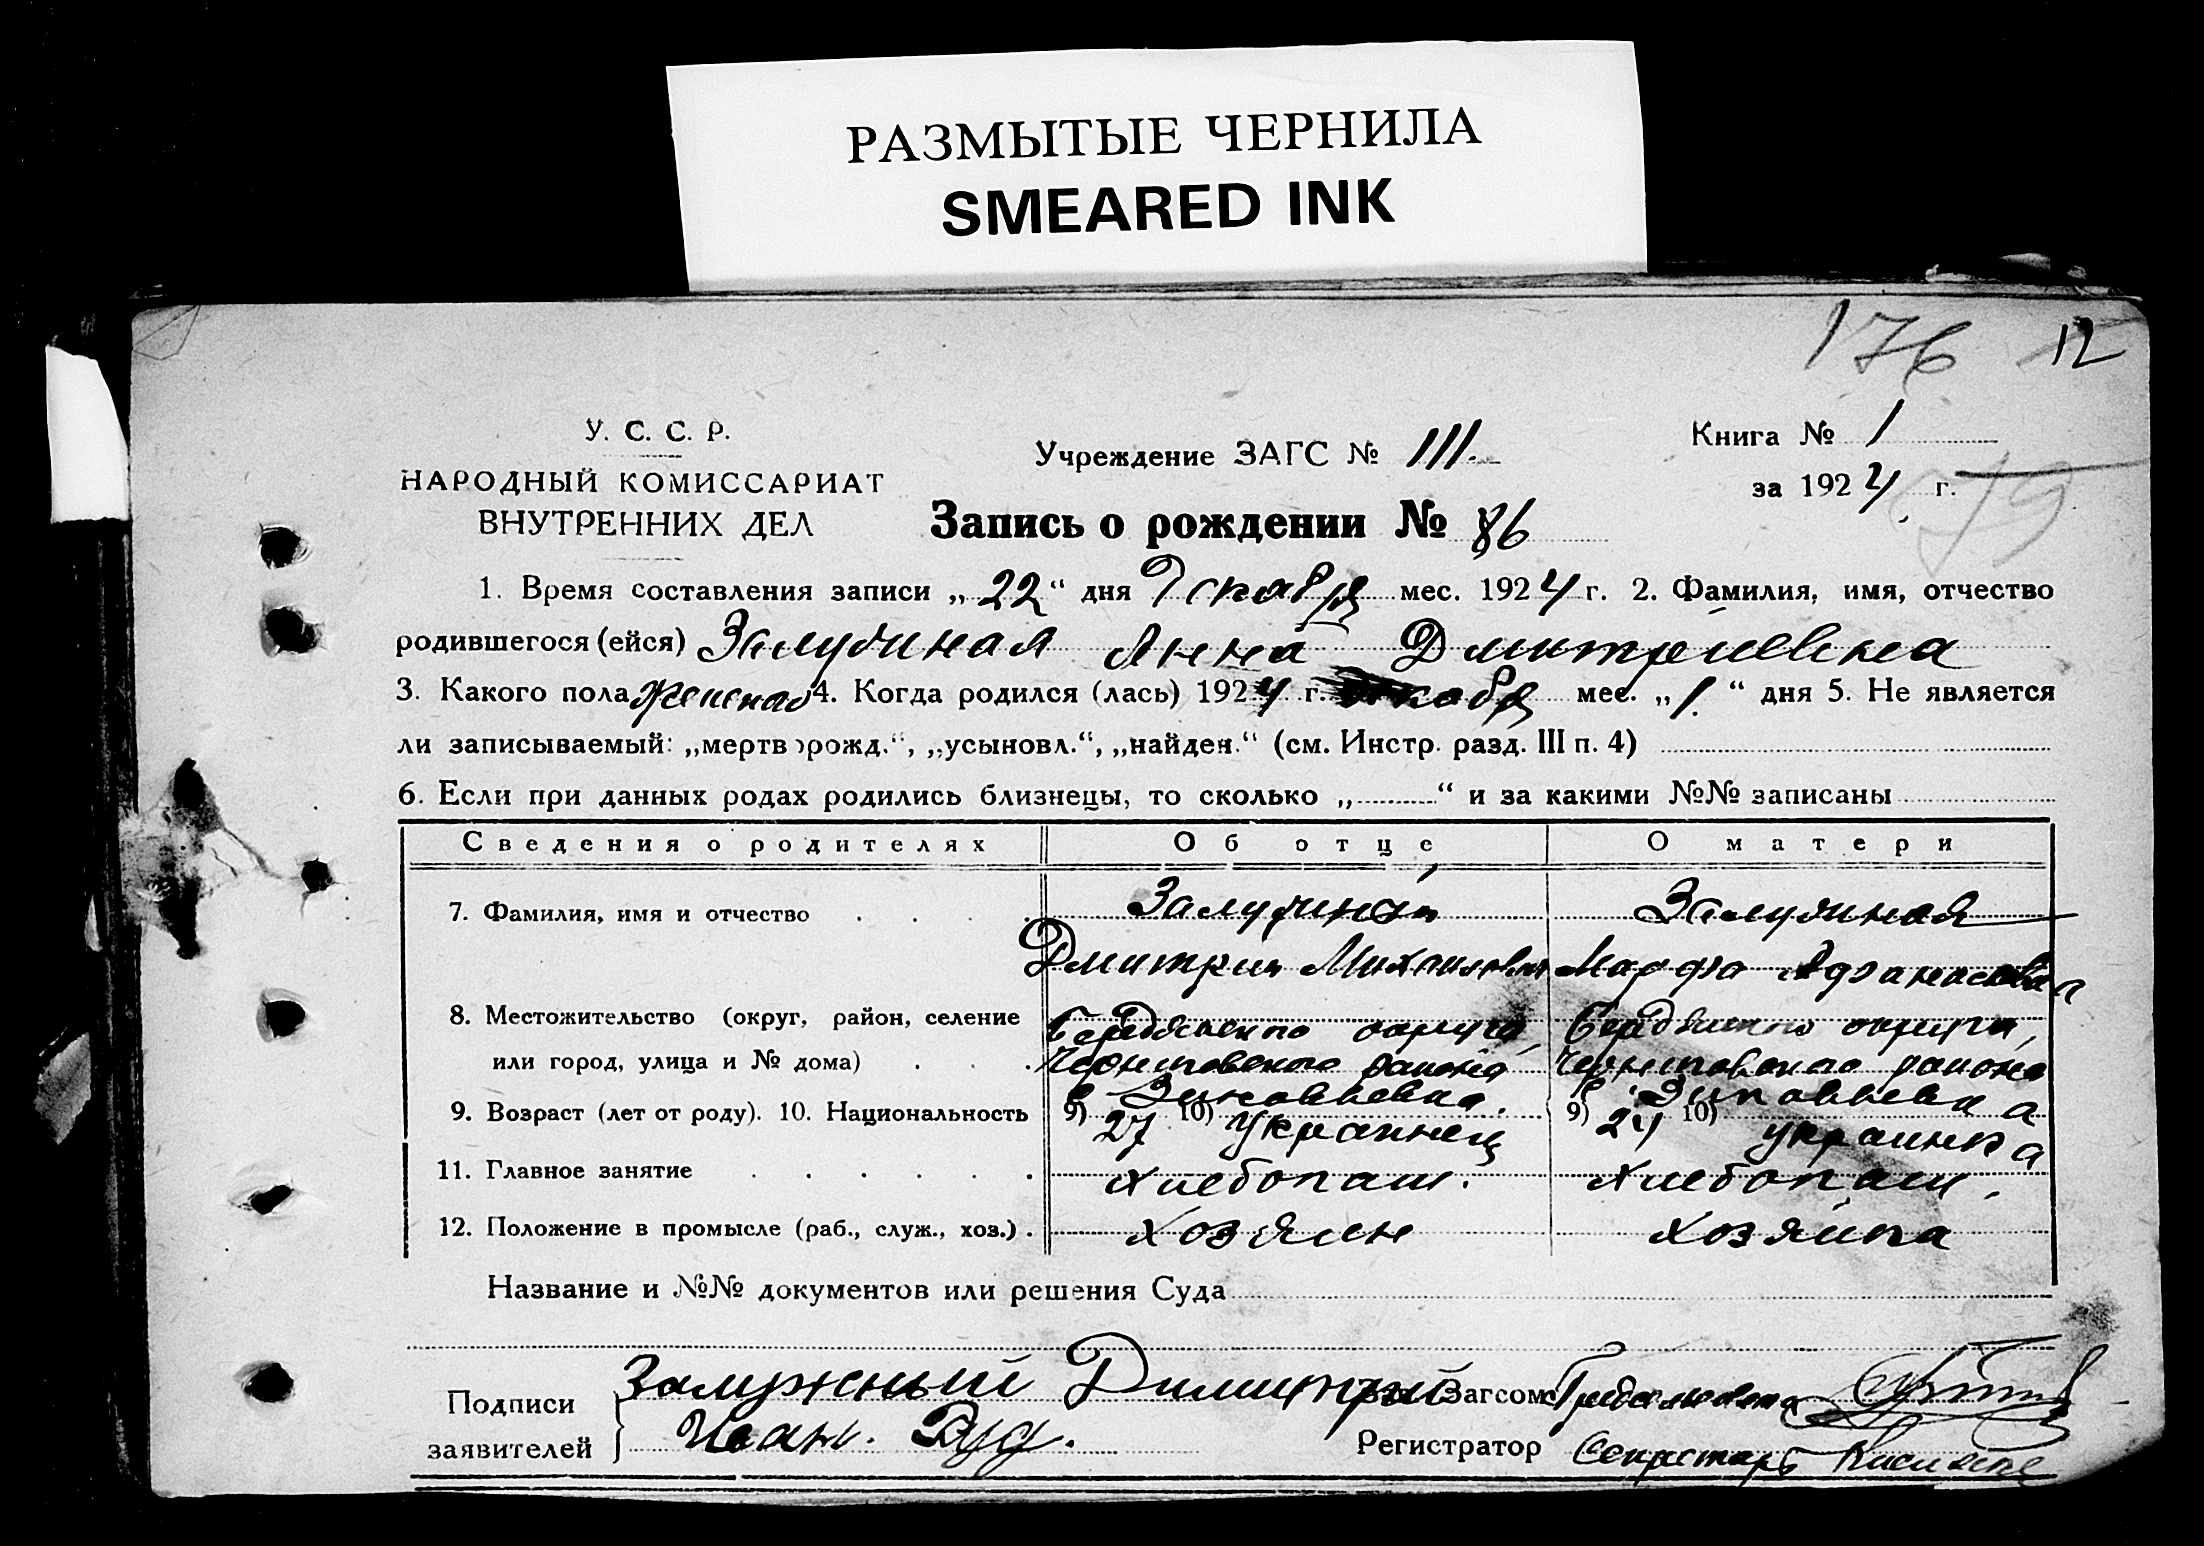 РАЗМЫТЫЕ ЧЕРНИЛА
SMEARED INK
176 12
У. С. С. Р.
НАРОДНЫЙ КОМИССАРИАТ
ВНУТРЕННИХ ДЕЛ
Учреждение ЗАГС № 111.
Книга № 1
за 1924 г.
79
Запись о рождении № 86
1. Время составления записи „22“ дня Декабря мес. 1924 г. 2. Фамилия, имя, отчество
родившегося (ейся) Залужная Анна Дмитриевна
3. Какого пола женского 4. Когда родился (лась) 1924 г. Декабря мес. „1.“ дня 5. Не является
ли записываемый: „мертворожд.“, „усыновл.“, „найден.“ (см. Инстр. разд. III п. 4)
6. Если при данных родах родились близнецы, то сколько „ “ и за какими №№ записаны
Сведения о родителях Об отце О матери
7. Фамилия, имя и отчество Залужный Залужная
Дмитрий Михайлович Марфа Афанасьевна
8. Местожительство (округ, район, селение Бердянского округа, Бердянского округа,
или город, улица и № дома) Черниговского района Черниговского района
с. Зиновьевка. с. Зиновьевка
9. Возраст (лет от роду). 10. Национальность 9) 27 10) Украинец 9) 24 10) украинка
11. Главное занятие Хлебопаш. Хлебопаш.
12. Положение в промысле (раб., служ., хоз.) Хозяин Хозяйка
Название и №№ документов или решения Суда
Подписи заявителей Залужный Димитрий
Загсом
Регистратор Секретарь